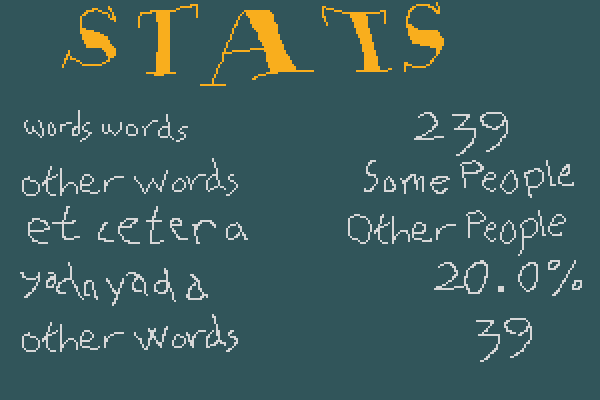 STATS
words words 239
other words Some People
et cetera Other People
yada yada 20.0%
other words 39